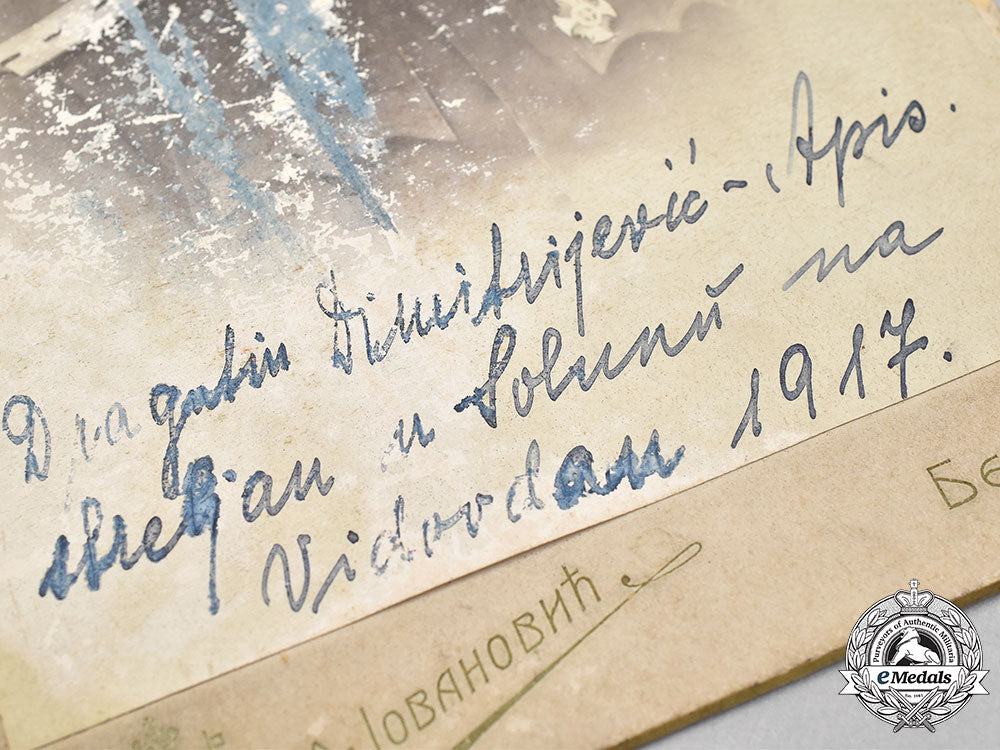 Dragutin Dimitrijević - Apis.
streljan u Solunŭ na
Vidovdan 1917.
ЈОВАНОВИЋ
БЕ
Purveyors of Authentic Militaria
eMedals